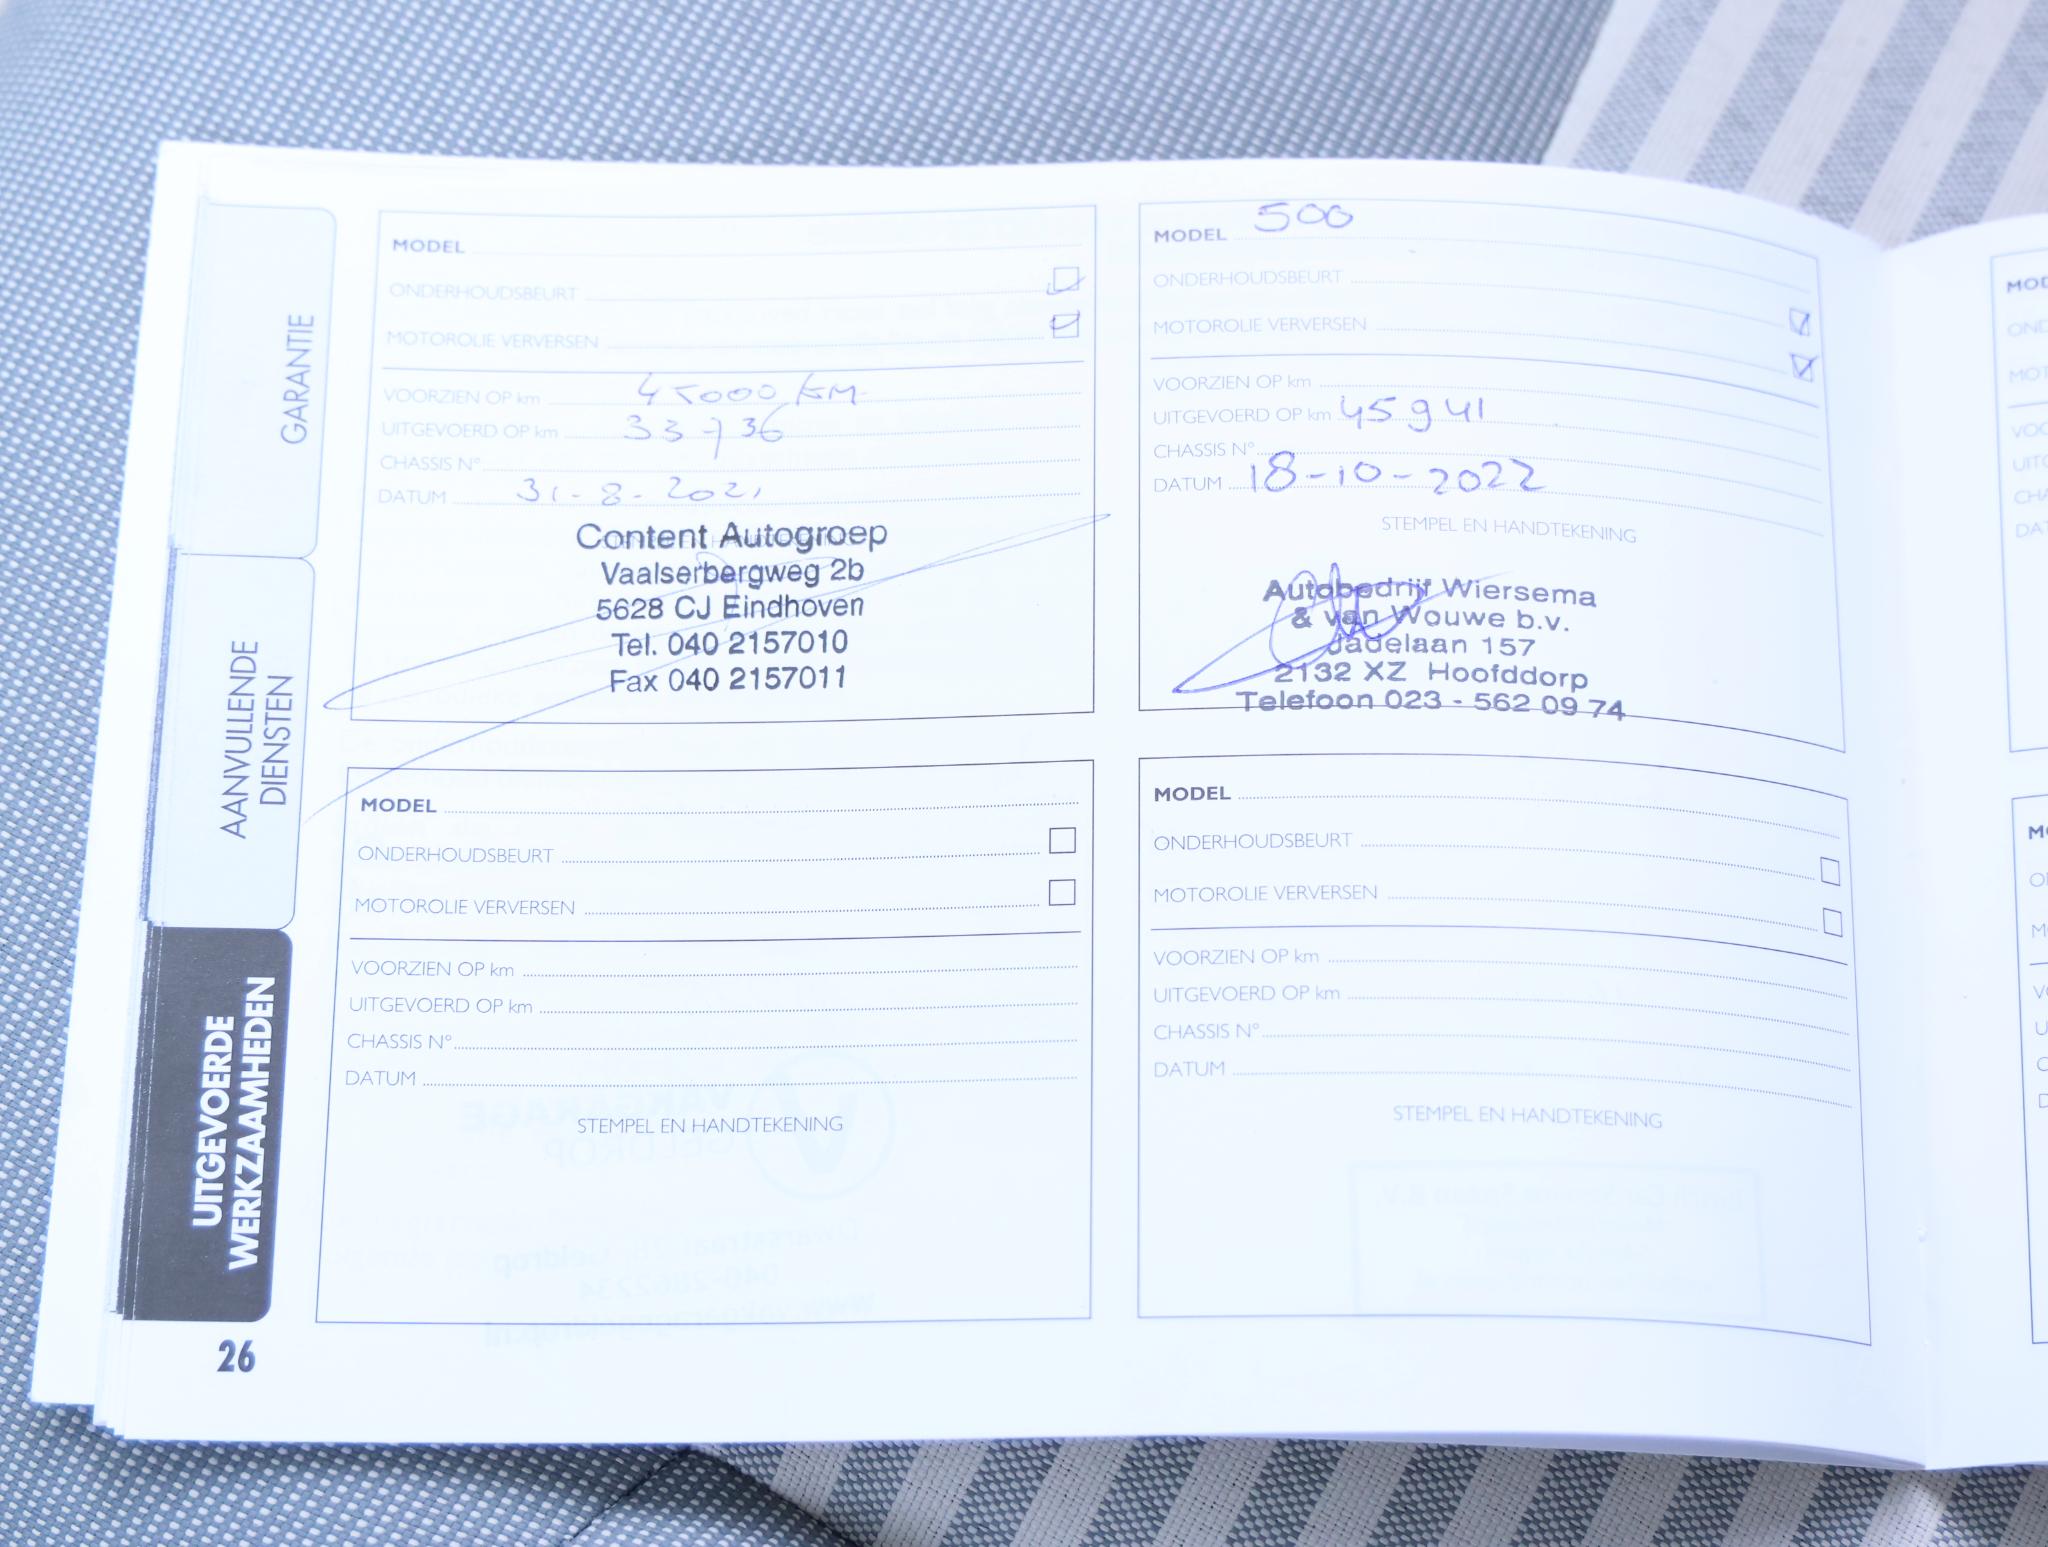 GARANTIE
AANVULLENDE
DIENSTEN
UITGEVOERDE
WERKZAAMHEDEN
26
MODEL
ONDERHOUDSBEURT
MOTOROLIE VERVERSEN
VOORZIEN OP km 45000 KM
UITGEVOERD OP km 33736
CHASSIS N°
DATUM 31-8-2021
Content Autogroep
Vaalserbergweg 2b
5628 CJ Eindhoven
Tel. 040 2157010
Fax 040 2157011
MODEL 500
ONDERHOUDSBEURT
MOTOROLIE VERVERSEN
VOORZIEN OP km
UITGEVOERD OP km 45941
CHASSIS N°
DATUM 18-10-2022
STEMPEL EN HANDTEKENING
Autobedrijf Wiersema
& van Wouwe b.v.
Jadelaan 157
2132 XZ Hoofddorp
Telefoon 023 - 562 09 74
MODEL
ONDERHOUDSBEURT
MOTOROLIE VERVERSEN
VOORZIEN OP km
UITGEVOERD OP km
CHASSIS N°
DATUM
STEMPEL EN HANDTEKENING
MODEL
ONDERHOUDSBEURT
MOTOROLIE VERVERSEN
VOORZIEN OP km
UITGEVOERD OP km
CHASSIS N°
DATUM
STEMPEL EN HANDTEKENING